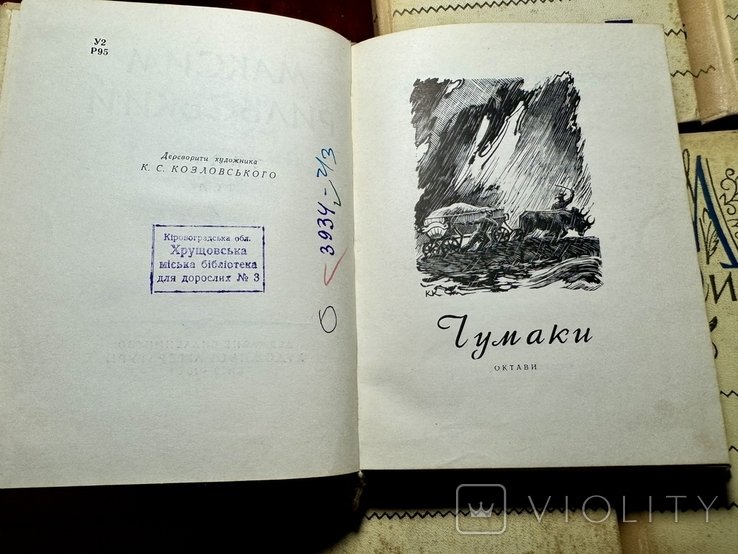 У2
Р95
Дереворити художника
К. С. КОЗЛОВСЬКОГО
Кіровоградська обл.
Хрущовська
міська бібліотека
для дорослих № 3
3934
КК
Чумаки
ОКТАВИ
VIOLITY